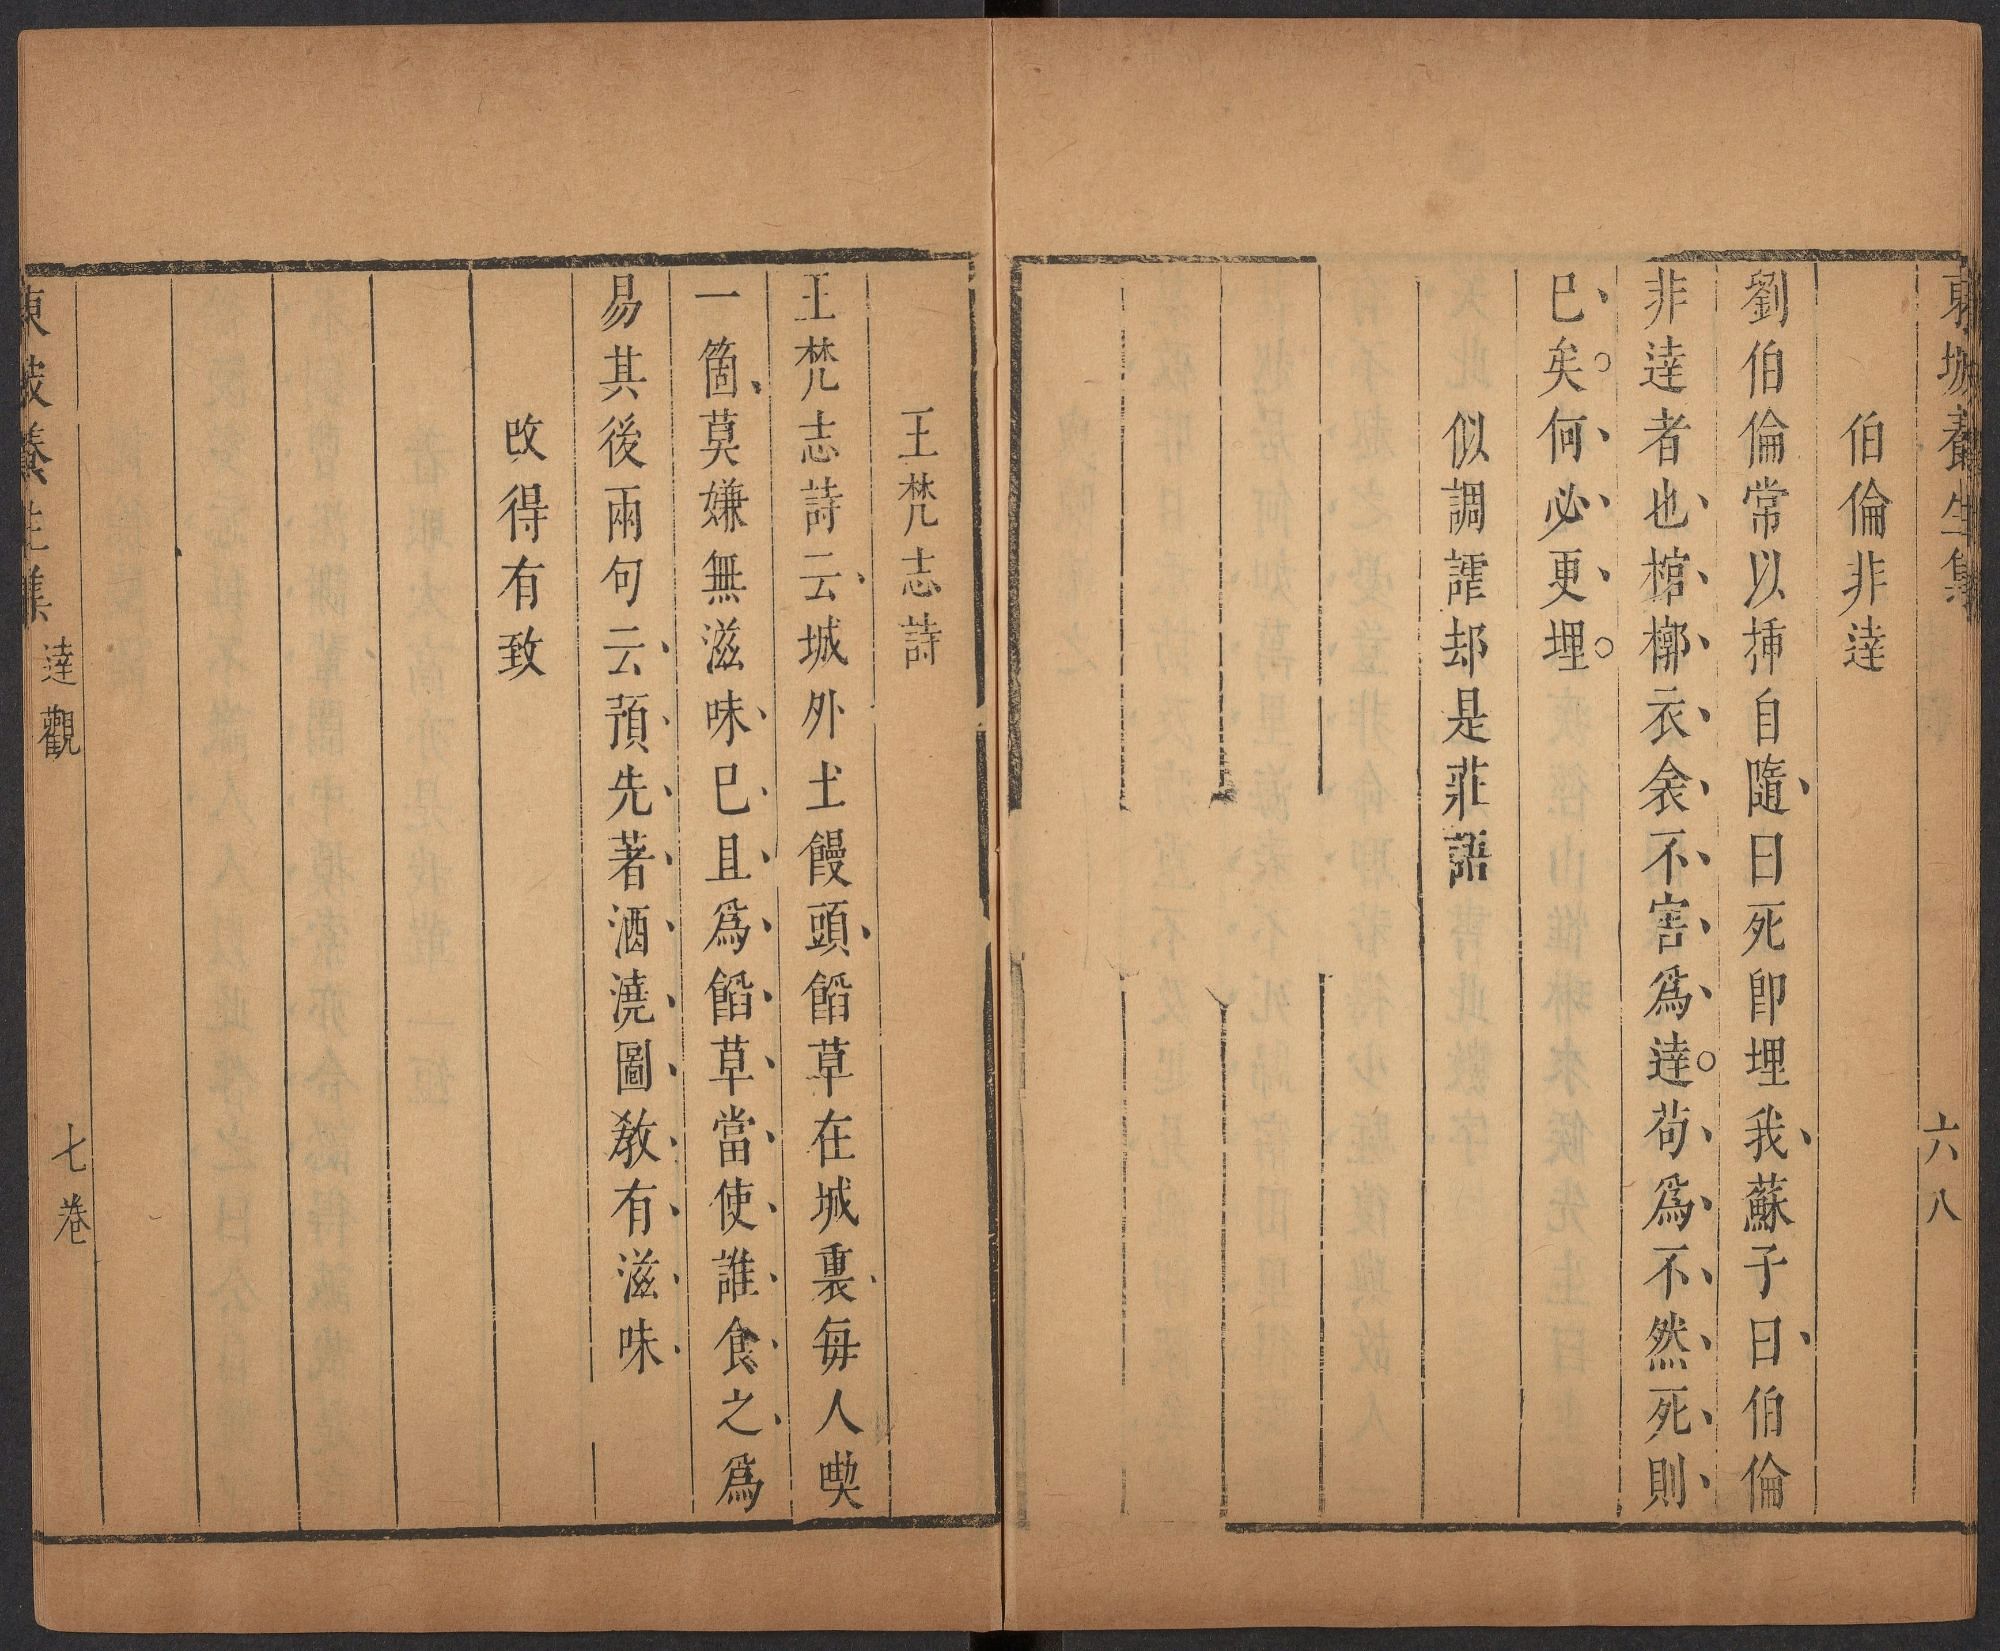 東坡養生集
六八
伯倫非達
劉伯倫常以揷自隨曰死卽埋我蘇子曰伯倫
非達者也棺槨衣衾不害爲達苟爲不然死則
已矣何必更埋
似調謔却是莊語
王梵志詩
王梵志詩云城外土饅頭餡草在城裏每人喫
一箇莫嫌無滋味已且爲餡草當使誰食之爲
易其後兩句云預先著酒澆圖教有滋味
改得有致
東坡養生集
達觀
七卷